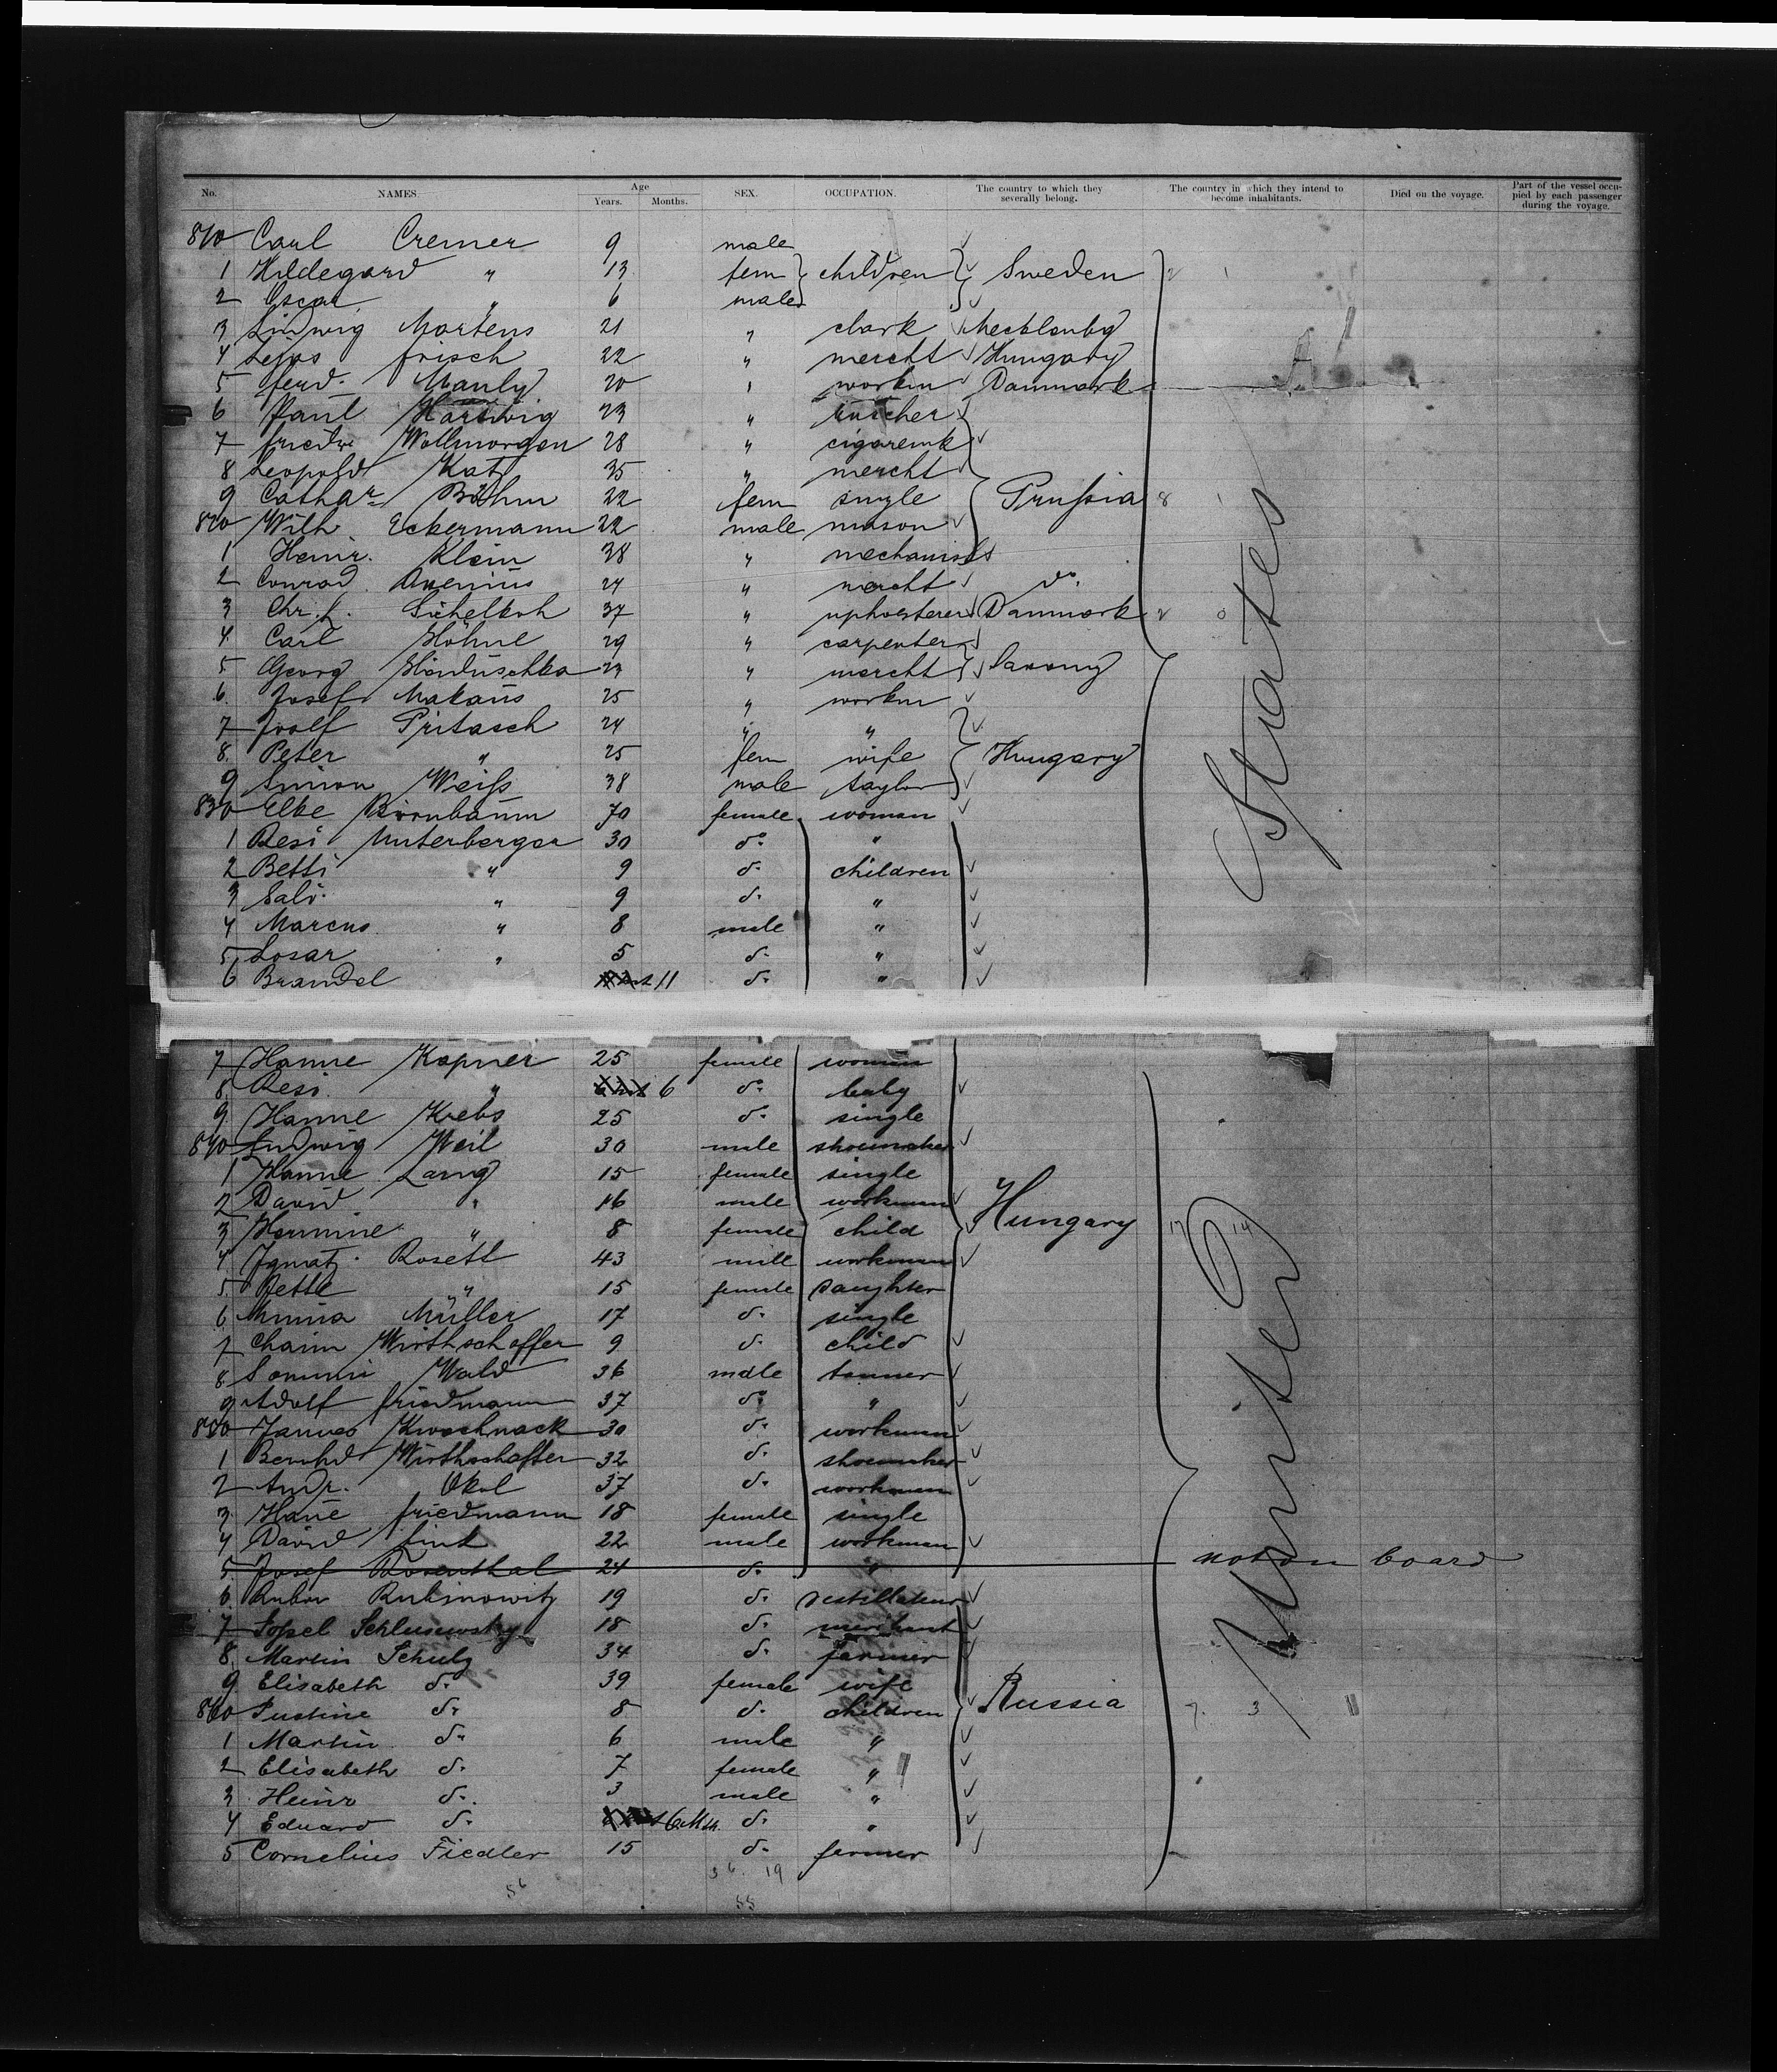 No. NAMES. Age Years. Months. SEX. OCCUPATION. The country to which they severally belong. The country in which they intend to become inhabitants. Died on the voyage. Part of the vessel occupied by each passenger during the voyage.
810 Carl Cremer 9 male
1 Hildegard " 13 fem children Sweden
2 Oscar " 6 male
3 Ludwig Martens 21 " clark Mecklenbg
4 Lejos Frisch 22 " mercht Hungary
5 Ferd. Manly 20 " workm Danmark
6 Paul Hartwig 23 "
7 Friedr Wollmorgen 28 " cigaremk
8 Leopold Katz 35 " mercht
9 Cathar Böhm 22 fem single Prussia 8 1
820 Wilh. Eckermann 22 male mason
1 Heinr. Klein 38 " mechanist
2 Conrad Avenius 24 " mercht do.
3 Chr. F. 37 " upholsterer Danmark 2 0
4 Carl Höhne 29 " carpenter
5 Georg 23 " mercht Saxony
6 Josef Makaus 25 " workm
7 Josef Pritasch 24 " "
8 Peter " 25 fem wife Hungary
9 Simon Weiss 38 male taylor
830 Elke Birnbaum 70 female woman
1 Resi Unterberger 30 do. "
2 Betti " 9 d. children
3 Sali " 9 d. "
4 Marcus " 8 male "
5 Losar " 5 d. "
6 Brandel 11 d. "
States
7 Hanne Kapner 25 female woman
8 Resi " 6 do. baby
9 Hanne Krebs 25 d. single
840 Ludwig Weil 30 male shoemaker
1 Hanne Lang 15 female single
2 David " 16 male workman
3 Hermine " 8 female child Hungary 17 14
4 Ignatz Rosett 43 male workman
5 Bette " 15 female daughter
6 Minna Müller 17 d. single
7 Chaim Wirthschafter 9 d. child
8 Wald 36 male tanner
9 Adolf Friedmann 37 do. "
850 Kwoschnack 30 d. workman
1 Bernhd Wirthschafter 32 d. shoemaker
2 Andr. Okol 37 d. workman
3 Hane Friedmann 18 female single
4 David Fink 22 male workman
5 Josef Rosenthal 24 d. " not on board
6 Rubin Rubinowitz 19 d. destillateur
7 18 d. merchant
8 Martin Schulz 34 d. farmer
9 Elisabeth d. 39 female wife
860 Justine d. 8 d. children Russia 7 3
1 Martin d. 6 male "
2 Elisabeth d. 7 female "
3 Heinr d. 3 male "
4 Eduard d. 6 Mth. d. "
5 Cornelius Fiedler 15 d. farmer
United
36 19
56
55